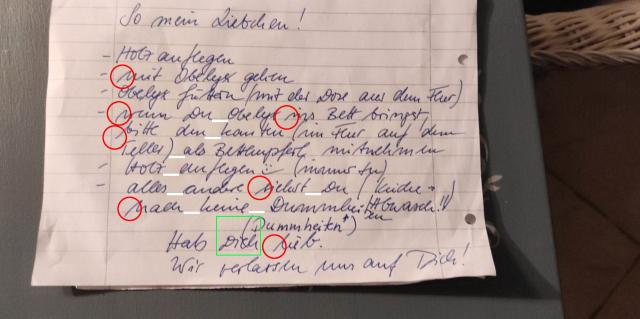 So mein Liebchen!
- Holz auflegen
- mit Obelyx gehen
- Obelyx füttern (mit der Dose aus dem Flur)
- wenn Du Obelyx ins Bett bringst,
bitte den Kanten (im Flur auf dem
Teller) als Betthupferl mitnehmen
- Holz auflegen (immer zu)
- alles andere siehst Du (Küche →)
mach keine Dummheit Abwasch!!
(Dummheiten*)
Hab Dich lieb.
Wir verlassen uns auf Dich!